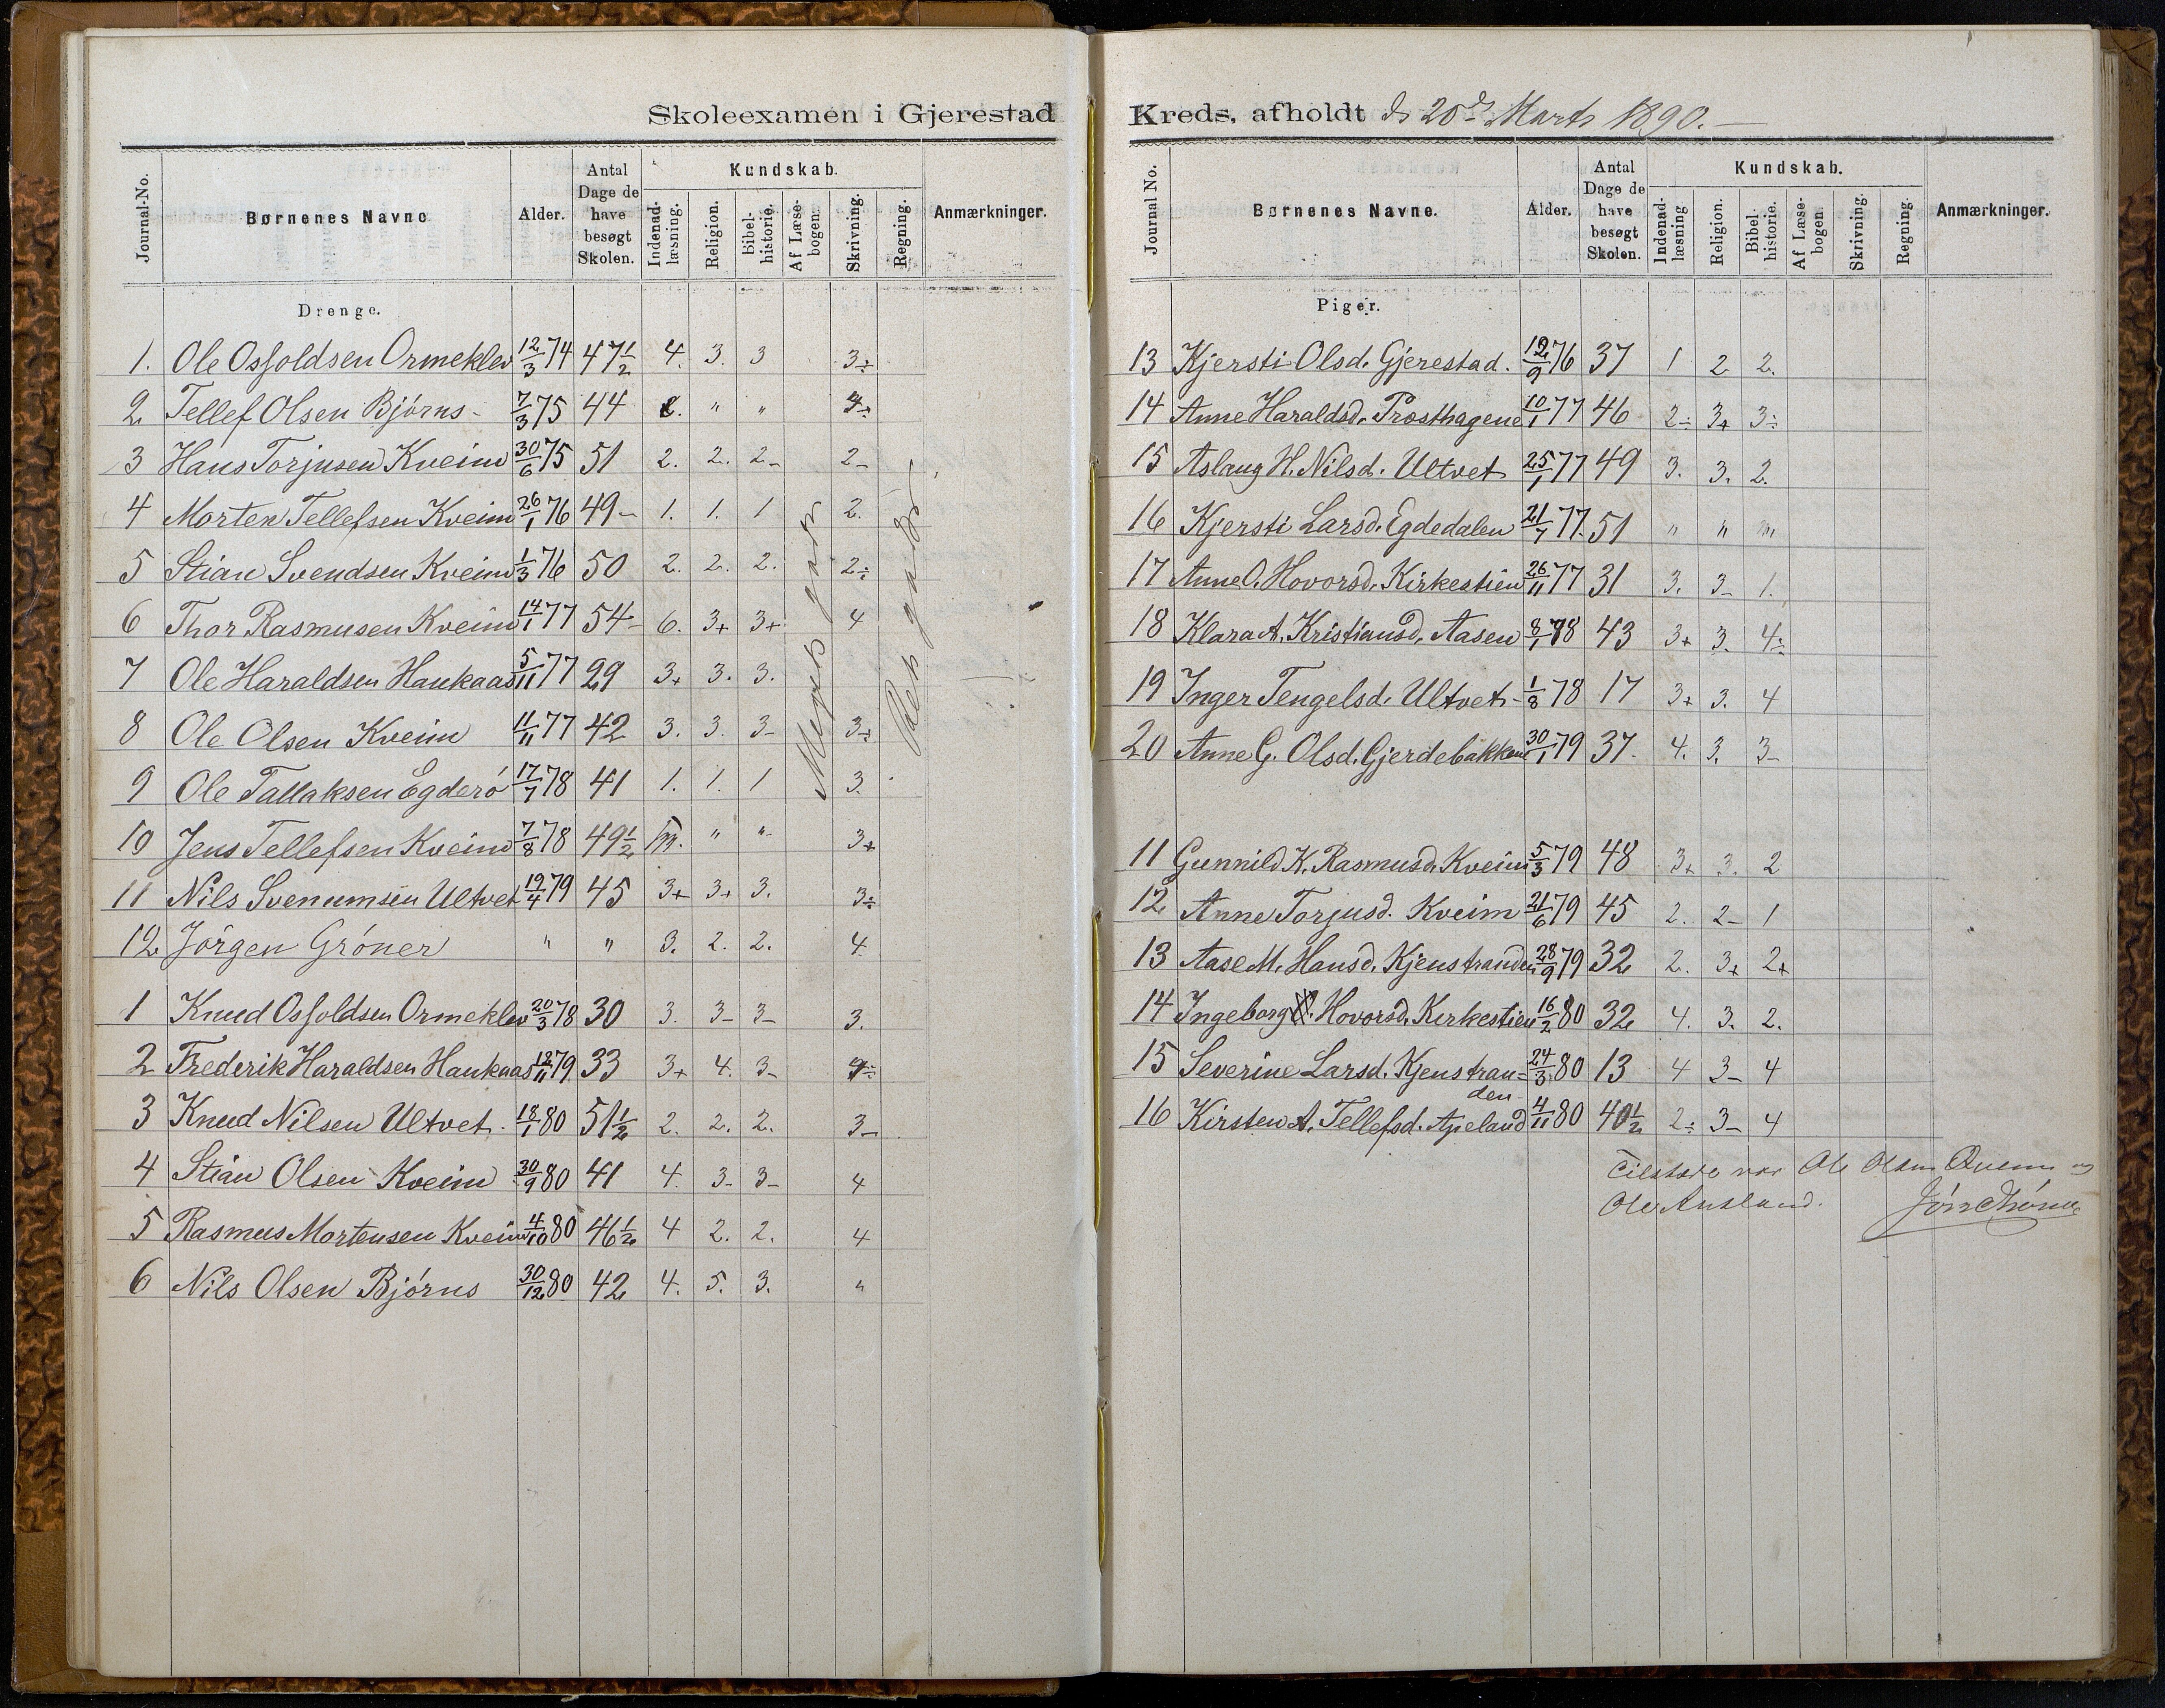 Skoleexamen i Gjerestad
Journal-No. Børnenes Navne Alder. Antal Dage de have besøgt Skolen. Kundskab. Indenad-læsning. Religion. Bibel-historie. Af Læse-bogen. Skrivning. Regning. Anmærkninger.
Drenge.
1. Ole Osfoldsen Ormeklev 12/3 74 47 1/2 4. 3. 3 3÷
2 Tellef Olsen Bjørns - 7/3 75 44 " "
3 Hans Torjusen Kveim 30/6 75 51 2. 2. 2- 2-
4 Morten Tellefsen Kveim 26/1 76 49- 1. 1. 1 2.
5 Stian Svendsen Kveim 1/3 76 50 2. 2. 2. 2÷
6 Thor Rasmusen Kveim 14/1 77 54- 6. 3+ 3+ 4
7 Ole Haraldsen Haukaas 5/11 77 29 3+ 3. 3.
8 Ole Olsen Kveim 11/11 77 42 3. 3. 3- 3+
9 Ole Tallaksen Egderø 17/7 78 41 1. 1. 1 3.
10 Jens Tellefsen Kveim 7/8 78 49 1/2 m. " " 3+
11 Nils Svenumsen Ultvet 19/4 79 45 3+ 3+ 3. 3÷
12 Jørgen Grøner " " 3. 2. 2. 4
Meget godt
1 Knud Osfoldsen Ormeklev 20/3 78 30 3. 3- 3- 3.
2 Frederik Haraldsen Haukaas 12/11 79 33 3+ 4. 3- 4÷
3 Knud Nilsen Ultvet. 18/1 80 51 1/2 2. 2. 2. 3-
4 Stian Olsen Kveim 30/9 80 41 4. 3- 3- 4
5 Rasmus Mortensen Kveim 4/10 80 46 1/2 4 2. 2. 4
6 Nils Olsen Bjørns 30/12 80 42 4. 5. 3. "
Kreds, afholdt d. 20de Marts 1890.-
Journal No. Børnenes Navne. Alder. Antal Dage de have besøgt Skolen. Kundskab. Indenad-læsning Religion. Bibel-historie. Af Læse-bogen. Skrivning. Regning. Anmærkninger.
Piger.
13 Kjersti Olsd. Gjerestad. 12/9 76 37 1 2 2.
14 Anne Haraldsd. Prosthagene 10/1 77 46 2÷ 3+ 3÷
15 Aslaug H. Nilsd. Ultvet 25/1 77 49 3. 3. 2.
16 Kjersti Larsd. Egdedalen 21/7 77. 51 " " m
17 Anne O. Hovorsd. Kirkestien 26/11 77 31 3. 3- 1.
18 Klara A. Kristiansd. Aasen 8/1 78 43 3+ 3. 4÷
19 Inger Tengelsd. Ultvet - 1/8 78 17 3+ 3. 4
20 Anne G. Olsd. Gjerdebakken 30/1 79 37. 4. 3. 3-
11 Gunnild K. Rasmusd. Kveim 5/3 79 48 3+ 3. 2
12 Anne Torjusd. Kveim 21/6 79 45 2. 2- 1
13 Aase M. Hansd. Kjenstranden 28/9 79 32 2. 3+ 2+
14 Ingeborg Hovorsd. Kirkestien 16/2 80 32 4. 3. 2.
15 Severine Larsd. Kjenstran= 24/3 80 13 4 3- 4
den
16 Kirsten A. Tellefsd. Apeland 4/11 80 40 1/2 2÷ 3- 4
Tilstede var Ole Olsen Quem og
Ole Ausland.